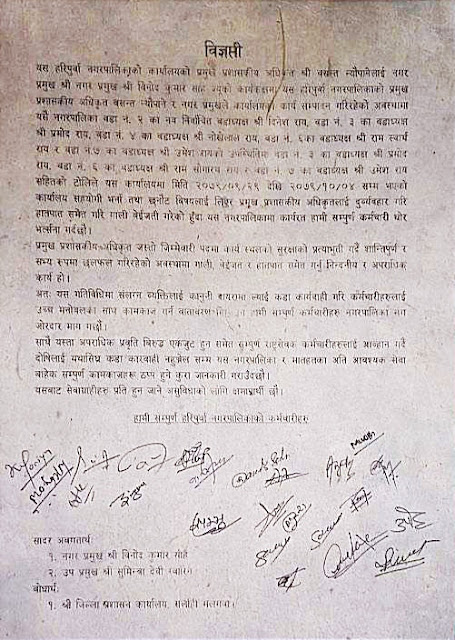 विज्ञप्ती
यस हरिपुर्वा नगरपालिकाको कार्यालयको प्रमुख प्रशासकीय अधिकृत श्री बसन्त न्यौपानेलाई नगर
प्रमुख श्री नगर प्रमुख श्री विनोद कुमार साह ज्यूको कार्यकक्षमा यस हरिपुर्वा नगरपालिकाको प्रमुख
प्रशासकीय अधिकृत बसन्त न्यौपाने र नगर प्रमुखले कार्यालयका कार्य सम्पादन गरिरहेको अवस्थामा
यसै नगरपालिका वडा नं. १ का नव निर्वाचित वडाध्यक्ष श्री दिनेश राय, वडा नं. ३ का वडाध्यक्ष
श्री प्रमोद राय, वडा नं. ४ का वडाध्यक्ष श्री राय, वडा नं. ६का वडाध्यक्ष श्री राम स्वार्थ
राय र वडा नं.७ का वडाध्यक्ष श्री उमेश रायको उपस्थितिमा वडा नं. ३ का वडाध्यक्ष श्री प्रमोद
राय, वडा नं. ६ का वडाध्यक्ष श्री राम राय र वडा नं. ७ का वडाध्यक्ष श्री उमेश राय
सहितको टोलिले यस कार्यालयमा मिति २०७९/०९/२९ देखि २०७९/१०/०४ सम्म भएको
कार्यालय सहयोगी भर्ना तथा छनौट विषयलाई लिएर प्रमुख प्रशासकीय अधिकृतलाई दुर्व्यवहार गरि
हातपात समेत गरि गाली बेईजती गरेको हुँदा यस नगरपालिकामा कार्यरत हामी सम्पुर्ण कर्मचारी घोर
भर्त्सना गर्दछौं।
प्रमुख प्रशासकीय अधिकृत जस्तो जिम्मेवारी पदमा कार्य स्थलको सुरक्षाको प्रत्याभुती गर्दै शान्तिपुर्ण र
सभ्य रुपमा छलफल गरिरहेको अवस्थामा गाली, बेईजत र हातपात समेत गर्नु निन्दनीय र अपराधिक
कार्य हो।
अतः यस गतिविधिमा संलग्न व्यक्तिलाई कानुनी दायरामा ल्याई कडा कार्यवाही गरि कर्मचारीहरुलाई
उच्च मनोबलका साथ कामकाज गर्न वातावरण हामी सम्पुर्ण कर्मचारीहरु नगरपालिका संग
जोरदार माग गर्छौ।
साथै यस्ता अपराधिक प्रवृति बिरुद्ध एकजुट हुन समेत सम्पुर्ण राष्ट्रसेवक कर्मचारीहरुलाई आव्हान गर्दै
दोषिलाई यथासिघ्र कडा कारवाही नहुञ्जेल सम्म यस नगरपालिका र मातहतका अति आवश्यक सेवा
बाहेक सम्पुर्ण कामकाजहरु ठप्प हुने कुरा जानकारी गराउँदछौं।
यसबाट सेवाग्राहीहरु प्रति हुन जाने असुविधाको लागि क्षमाप्रार्थी छौं।
हामी सम्पुर्ण हरिपुर्वा नगरपालिकाको कर्मचारीहरु
सादर अवगतार्थः
१. नगर प्रमुख श्री विनोद कुमार साह
२. उप प्रमुख श्री सुमित्रा देवी
बोधार्थः
१. श्री जिल्ला प्रशासन कार्यालय, सर्लाही मलंगवा।